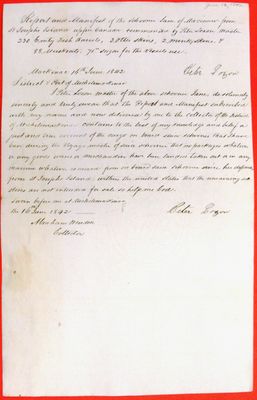 Report and Manifest of the schooner Jane of Mackinaw from
St Josephs Island upper Canada commanded by Peter Master
235 Empty Fish Barrels, 2 Otter skins, 2 skins, 4
88 Muskrats, 75 sugar for the Vessels use.
Mackinac 16th June 1842. Peter
District & Port of Michilimackinac
I Peter master of the above schooner Jane, do solemnly
sincerely and truly swear that the Report and Manifest subscribed
with my name and now delivered by me to the Collector of the district
of Michilimackinac contains to the best of my knowledge and belief a
just and true account of the cargo on board said schooner that there
during the Voyage made of said schooner that no packages whatever
or any goods wares or merchandise have been landed taken out or in any
manner whatever removed from on board said schooner since her departure
from St Josephs Island, within the united States that the remaining
stores are not intended for sale so help me God.
Sworn before me at Michilimackinac
the 16th June 1842 Peter
Abraham Wendell
Collector